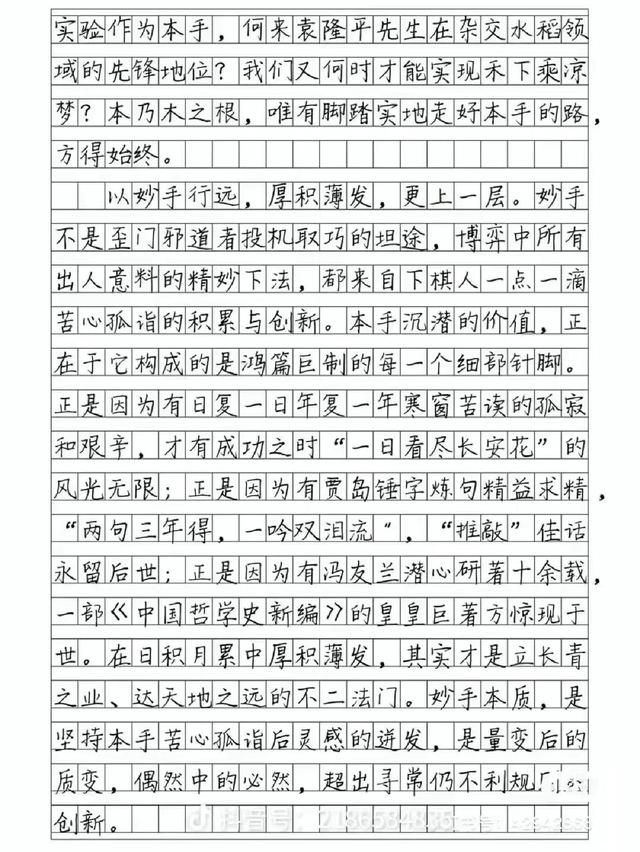 实验作为本手，何来袁隆平先生在杂交水稻领
域的先锋地位？我们又何时才能实现禾下乘凉
梦？本乃木之根，唯有脚踏实地走好本手的路，
方得始终。
以妙手行远，厚积薄发，更上一层。妙手
不是歪门邪道者投机取巧的坦途，博弈中所有
出人意料的精妙下法，都来自下棋人一点一滴
苦心孤诣的积累与创新。本手沉潜的价值，正
在于它构成的是鸿篇巨制的每一个细部针脚。
正是因为有日复一日年复一年寒窗苦读的孤寂
和艰辛，才有成功之时“一日看尽长安花”的
风光无限；正是因为有贾岛锤字炼句精益求精，
“两句三年得，一吟双泪流”，“推敲”佳话
永留后世；正是因为有冯友兰潜心研著十余载，
一部《中国哲学史新编》的皇皇巨著方惊现于
世。在日积月累中厚积薄发，其实才是立长青
之业、达天地之远的不二法门。妙手本质，是
坚持本手苦心孤诣后灵感的迸发，是量变后的
质变，偶然中的必然，超出寻常仍不利规
创新。
抖音号：2186584835